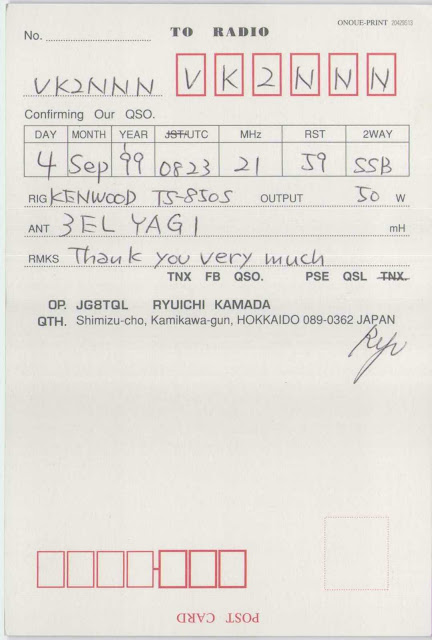 ONOUE-PRINT
No.
TO RADIO
VK2NNN VK2NNN
Confirming Our QSO.
DAY MONTH YEAR JST/UTC MHz RST 2WAY
4 Sep 99 0823 21 59 SSB
RIG KENWOOD TS-850S OUTPUT 50 W
ANT 3EL YAGI mH
RMKS Thank you very much
TNX FB QSO. PSE QSL TNX.
OP. JG8TQL RYUICHI KAMADA
QTH. Shimizu-cho, Kamikawa-gun, HOKKAIDO 089-0362 JAPAN
Ryu
POST CARD